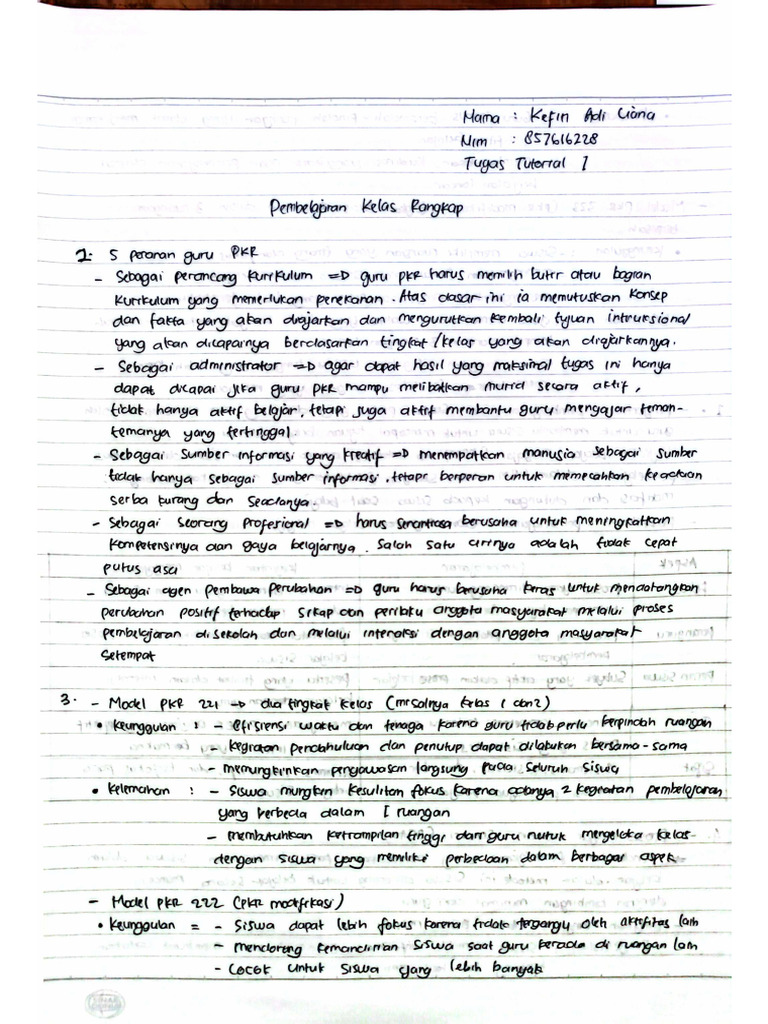 Nama : Kefin Adi Ciana
Nim : 857616228
Tugas Tutorial 1
Pembelajaran Kelas Rangkap
1. 5 peranan guru PKR
- Sebagai perancang kurikulum => guru PKR harus memilih butir atau bagian
kurikulum yang memerlukan penekanan. Atas dasar ini ia memutuskan konsep
dan fakta yang akan diajarkan dan mengurutkan kembali tujuan intruksional
yang akan dicapainya berdasarkan tingkat/kelas yang akan diajarkannya.
- Sebagai administrator => agar dapat hasil yang maksimal tugas ini hanya
dapat dicapai jika guru PKR mampu melibatkan murid secara aktif,
tidak hanya aktif belajar, tetapi juga aktif membantu guru mengajar teman-
temanya yang tertinggal
- Sebagai sumber informasi yang kreatif => menempatkan manusia sebagai sumber
tidak hanya sebagai sumber informasi, tetapi berperan untuk memecahkan keadaan
serba kurang dan seadanya.
- Sebagai seorang profesional => harus senantiasa berusaha untuk meningkatkan
kompetensinya dan gaya belajarnya. Salah satu cirinya adalah tidak cepat
putus asa
- Sebagai agen pembawa perubahan => guru harus berusaha keras untuk mendatangkan
perubahan positif terhadap sikap dan perilaku anggota masyarakat melalui proses
pembelajaran di sekolah dan melalui interaksi dengan anggota masyarakat
setempat
3. - Model PKR 221 -> dua tingkat kelas (misalnya kelas 1 dan 2)
• Keunggulan : - efisiensi waktu dan tenaga karena guru tidak perlu berpindah ruangan
- kegiatan pendahuluan dan penutup dapat dilakukan bersama-sama
- memungkinkan pengawasan langsung pada seluruh siswa
• Kelemahan : - siswa mungkin kesulitan fokus karena adanya 2 kegiatan pembelajaran
yang berbeda dalam 1 ruangan
- membutuhkan ketrampilan tinggi dari guru untuk mengelola kelas
dengan siswa yang memiliki perbedaan dalam berbagai aspek
- Model PKR 222 (PKR modifikasi)
• Keunggulan = - Siswa dapat lebih fokus karena tidak terganggu oleh aktifitas lain
- mendorong kemandirian siswa saat guru berada di ruangan lain
- Cocok untuk siswa yang lebih banyak